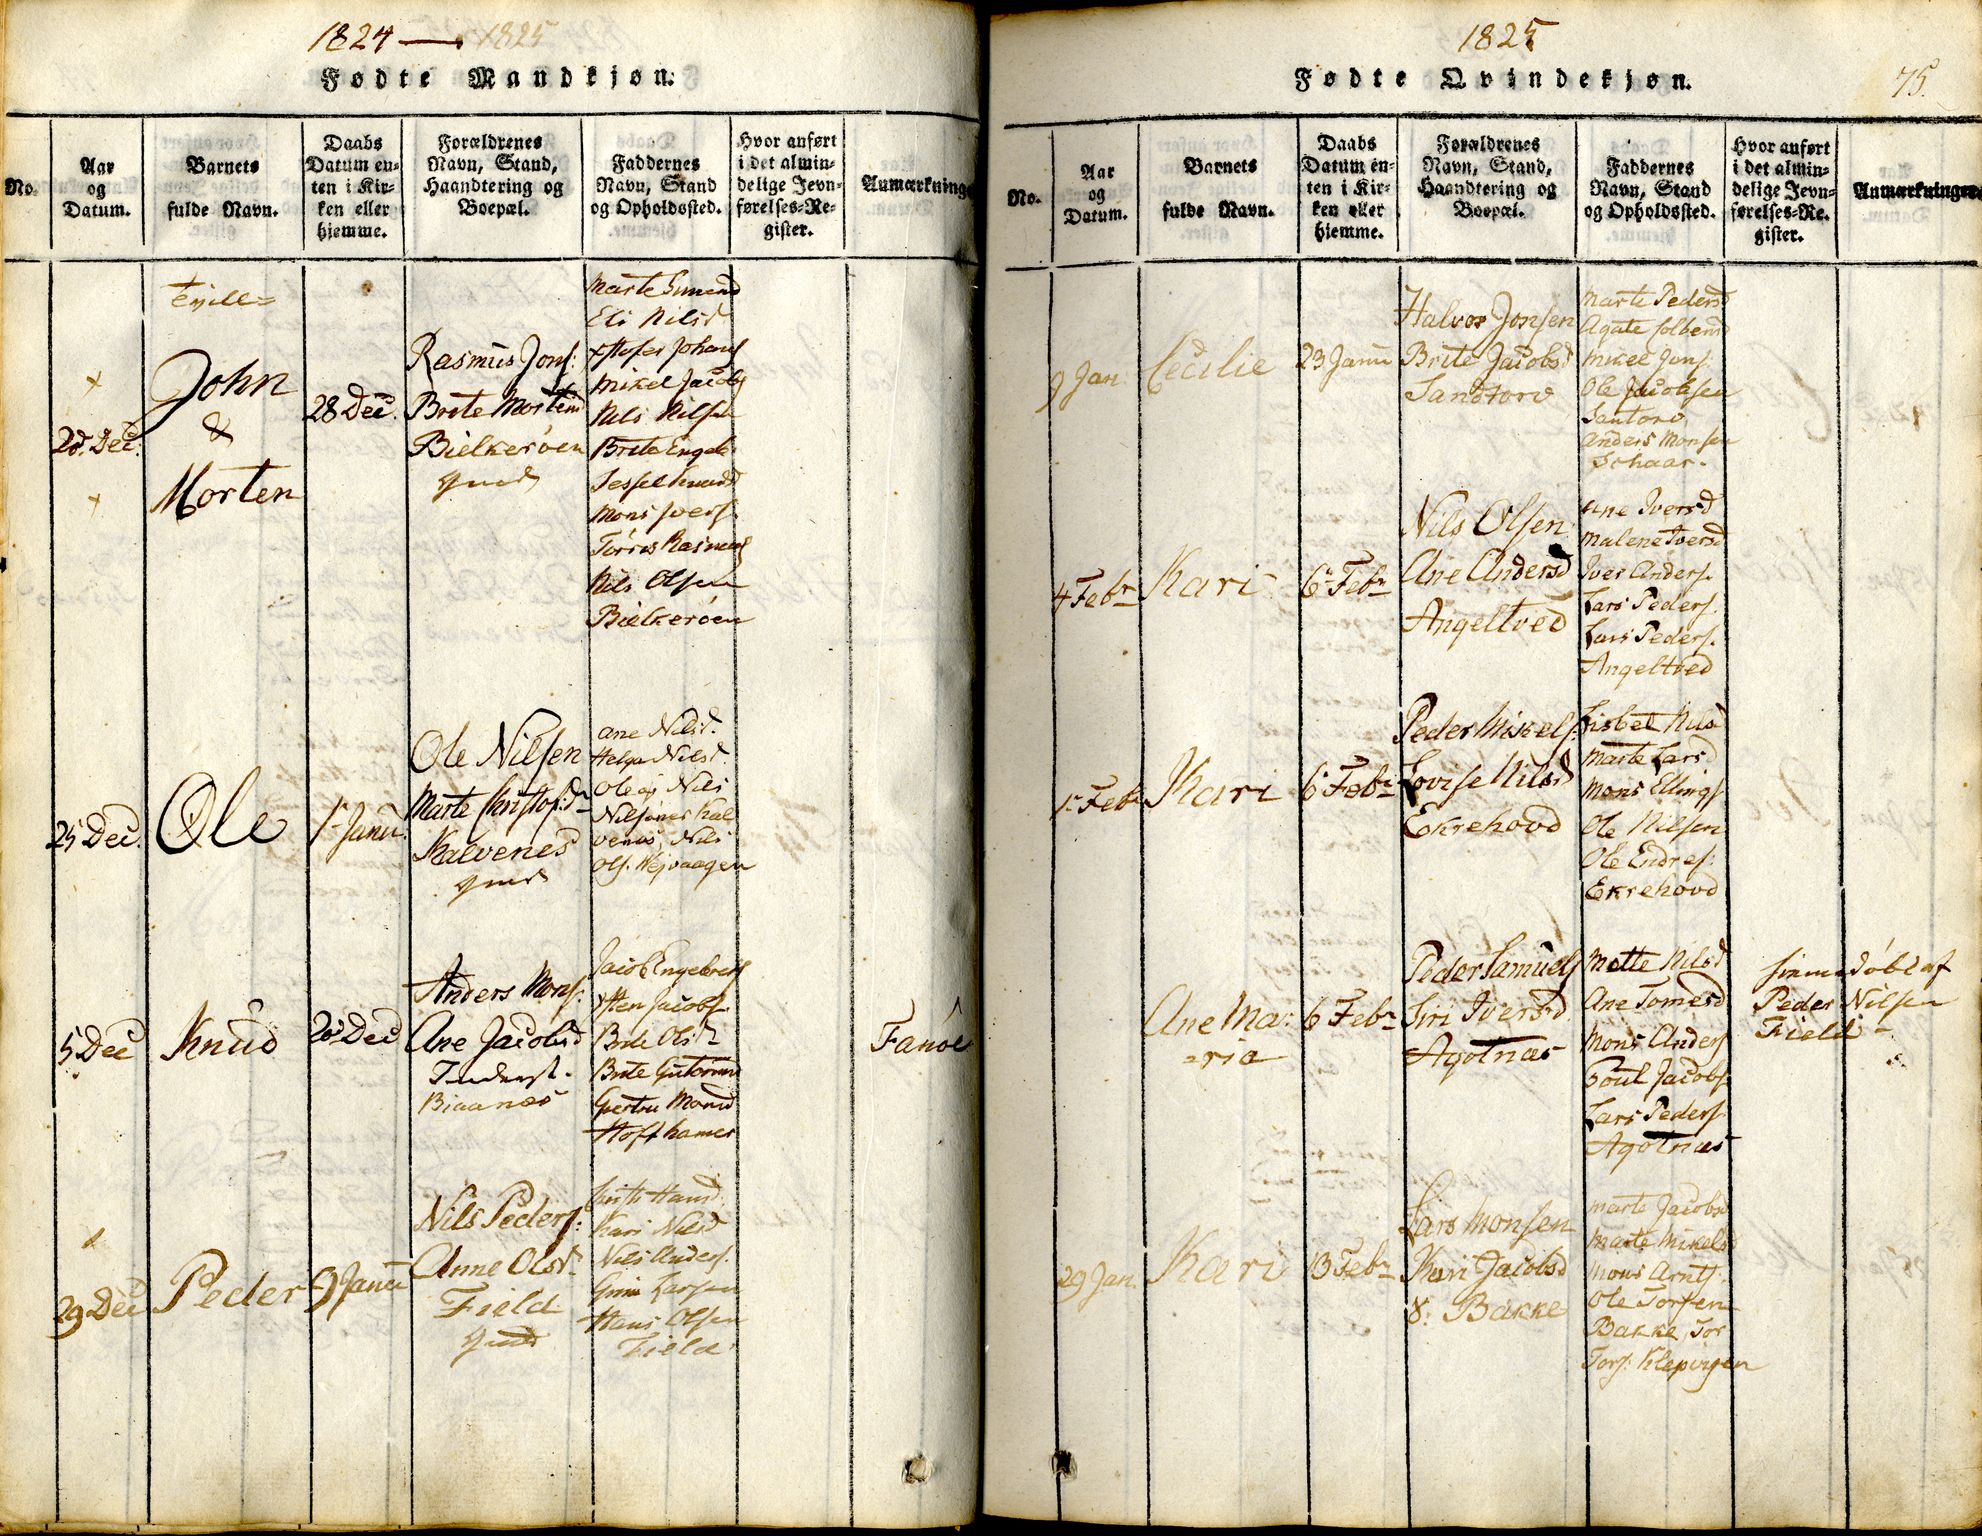 1824 — 1825
Fødte Mandkjøn.
No.
Aar
og
Datum.
Barnets
fulde Navn.
Daabs
Datum en-
ten i Kir-
ken eller
hjemme.
Forældrenes
Navn, Stand,
Haandtering og
Boepæl.
Faddernes
Navn, Stand
og Opholdssted.
Hvor anført
i det almin-
delige Jevn-
førelses-Re-
gister.
Anmærkninge
20. Dec.
John
&
Morten
28 Dec.
Rasmus Jons:
Brite Mortensd
Bielkerøen
Marte
Eli Nilsd
Johans
Mikel Jacobs
Nils Nilsen
Brite Engels
Mons Ivers.
Torres Rasmus
Nils Olsen
Bielkerøen
25 Dec.
Ole
1 Janu.
Ole Nilsen
Marte Christofsd
Kalvenes
Ane Nilsd.
Helga Nilsd.
Ole og Nils
Nilsøner Kal
venes, Nils
Ols. Wejvaagen
5 Dec
Knud
20 Dec
Anders Mons:
Ane Jacobsd
Biaanæs
Jacob Engebrets
Sten Jacobs.
Brite Olsd
Brite Guttorms
Gertru Monsd
Fanøe
29 Dec
Peder
9 Janu
Nils Peders:
Anne Olsd
Field
Hansd.
Kari Nilsd
Nils Anders.
Larsen
Hans Olsen
Field
1825
75.
Fødte Qvindekjøn.
No.
Aar
og
Datum.
Barnets
fulde Navn.
Daabs
Datum en-
ten i Kir-
ken eller
hjemme.
Forældrenes
Navn, Stand,
Haandtering og
Boepæl.
Faddernes
Navn, Stand
og Opholdssted.
Hvor anført
i det almin-
delige Jevn-
førelses-Re-
gister.
Anmærkninger
9 Jan.
Cecilie
23 Janu
Halvor Jonsen
Brite Jacobsd
Sandtorv
Marte Pedersd
Agate Solbensd
Mikel Jons.
Ole Jacobsen
Santorv
Anders Monsen
Schaar.
4 Febr
Kari
6 Febr
Nils Olsen
Ane Andersd
Angeltved
Ane Iversd
Malene Iversd
Iver Anders.
Lars Peders.
Lars Peders.
Angeltved
1 Febr
Kari
6 Febr
Peder Mikels:
Lovise Nilsd
Ekrehovd
Lisbet Nilsd
Marte Larsd
Mons Ellings
Ole Nilsen
Ole Endres:
Ekrehovd
Ane Ma:
=ria
6 Febr
Peder Samuels
Siri Iversd
Agotnæs
Mette Nilsd
Ane Tomesd
Mons Anders
Poul Jacobs.
Lars Peders.
Agotnæs
hiemedøbt af
Peder Nilsen
Field
29 Jan.
Kari
13 Febr
Lars Monsen
Kari Jacobsd
Bakke
Marte Jacobsd
Marte Mikelsd
Mons Arnts.
Ole Torsen
Bakke, Tor
Tors: Klepvigen